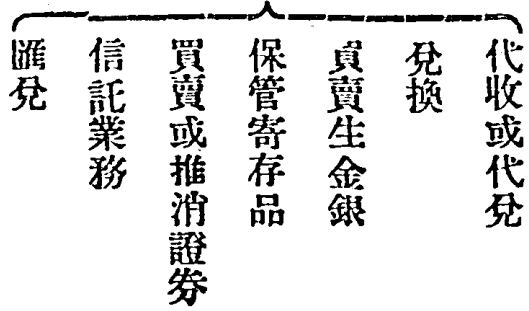 代收或代兌
兌換
買賣生金銀
保管寄存品
買賣或推消證券
信託業務
匯兌